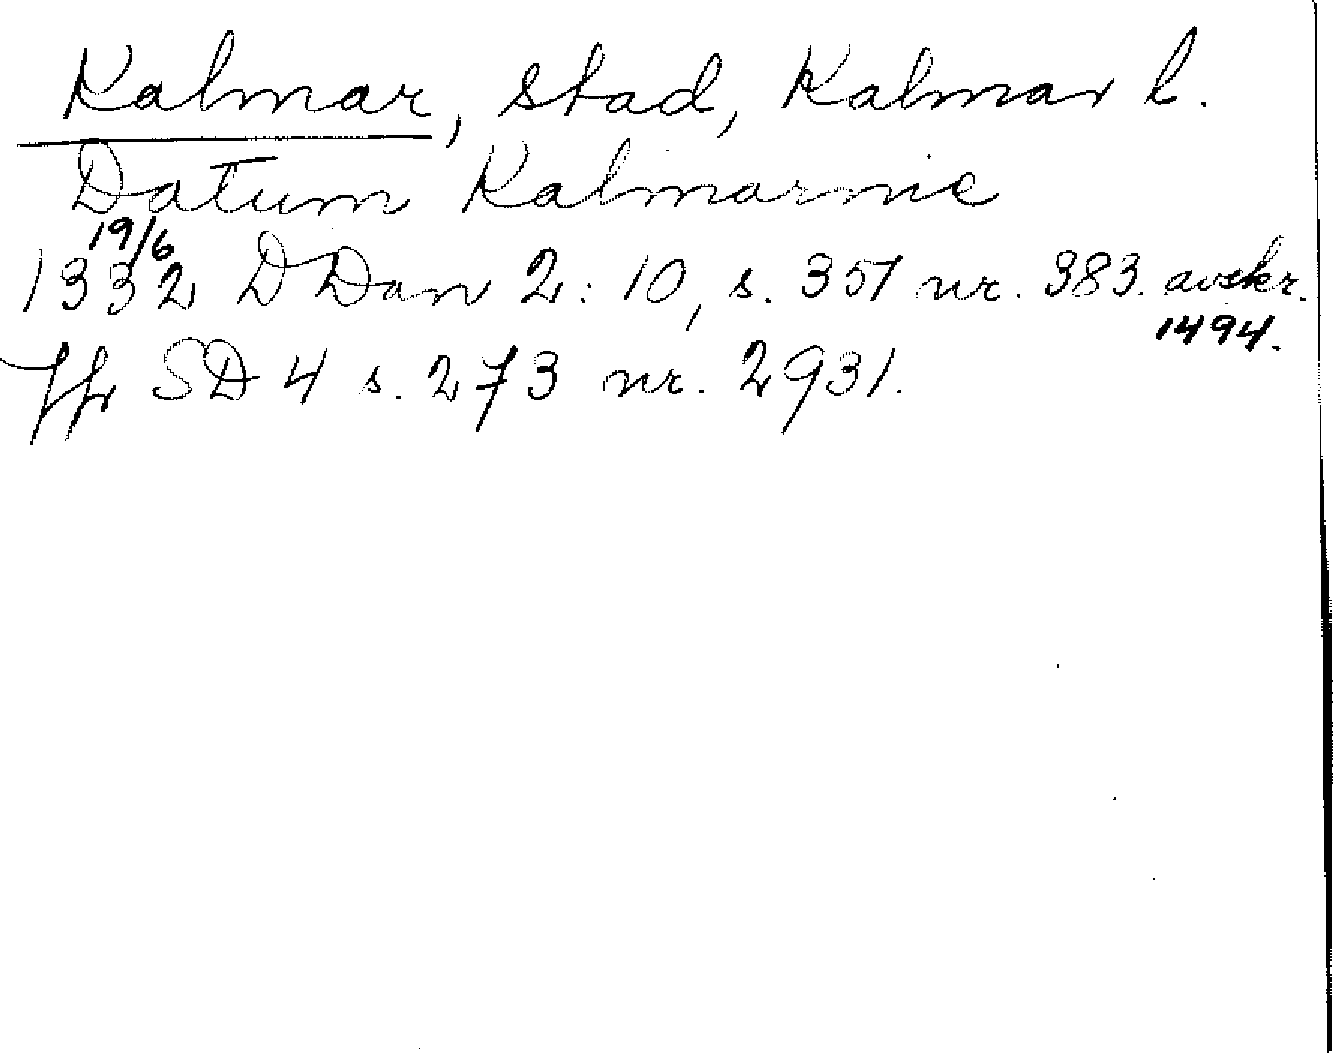 Kalmar, stad, Kalmar l.
Datum Kalmarnie
19/6
1332 DDan 2:10, s. 357 nr. 383. avskr.
1494.
Jfr SD 4 s. 273 nr. 2931.